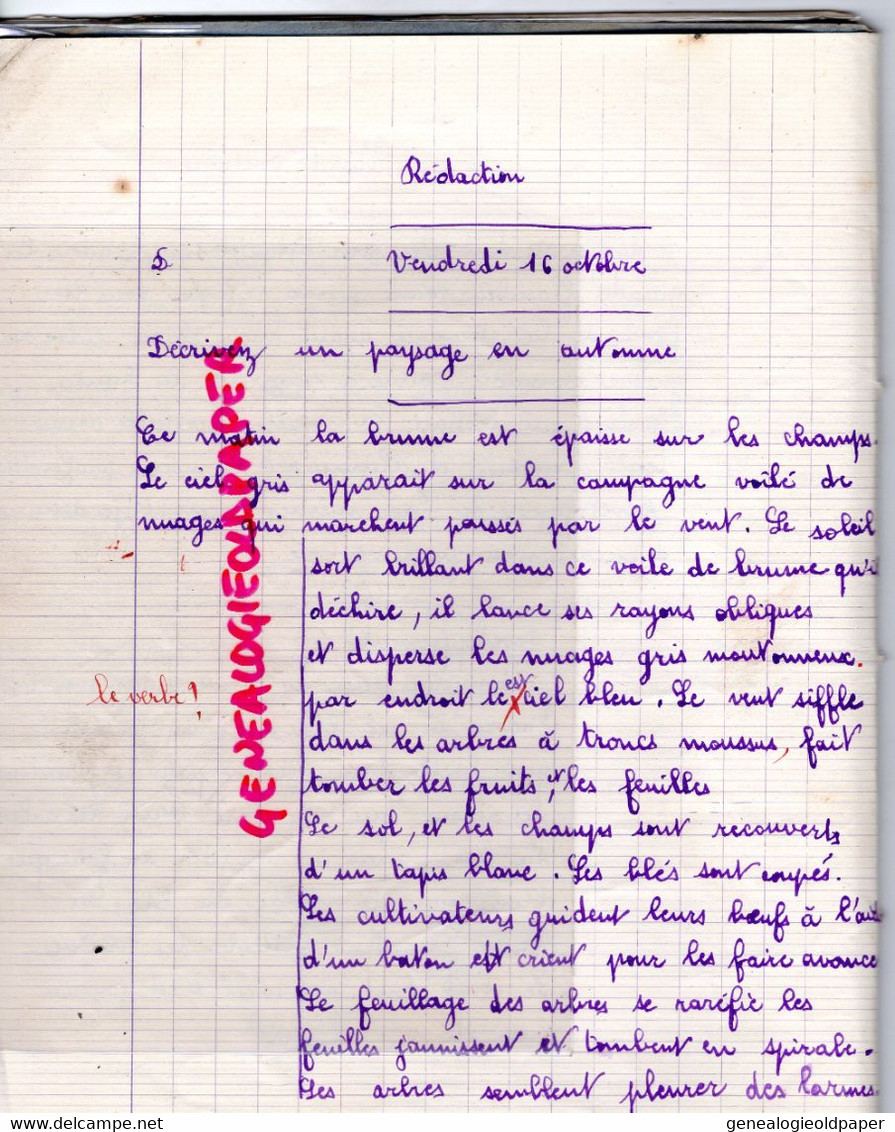 Rédaction
Vendredi 16 octobre
Décrivez un paysage en automne
Ce matin la brume est épaisse sur les champs.
Le ciel gris apparait sur la campagne voilé de
nuages qui marchent poussés par le vent. Le soleil
sort brillant dans ce voile de brume qu'il
déchire, il lance ses rayons obliques
et disperse les nuages gris moutonneux.
le verbe!
par endroit le est ciel bleu. Le vent siffle
dans les arbres à troncs moussus, fait
tomber les fruits, et les feuilles
Le sol, et les champs sont recouverts
d'un tapis blanc. Les blés sont coupés.
Les cultivateurs guident leurs bœufs à l'
d'un baton et crient pour les faire avance
Le feuillage des arbres se raréfie les
feuilles jaunissent et tombent en spirale.
Les arbres semblent pleurer des larmes.
GENEALOGIEOLDPAPER
www.delcampe.net
genealogieoldpaper